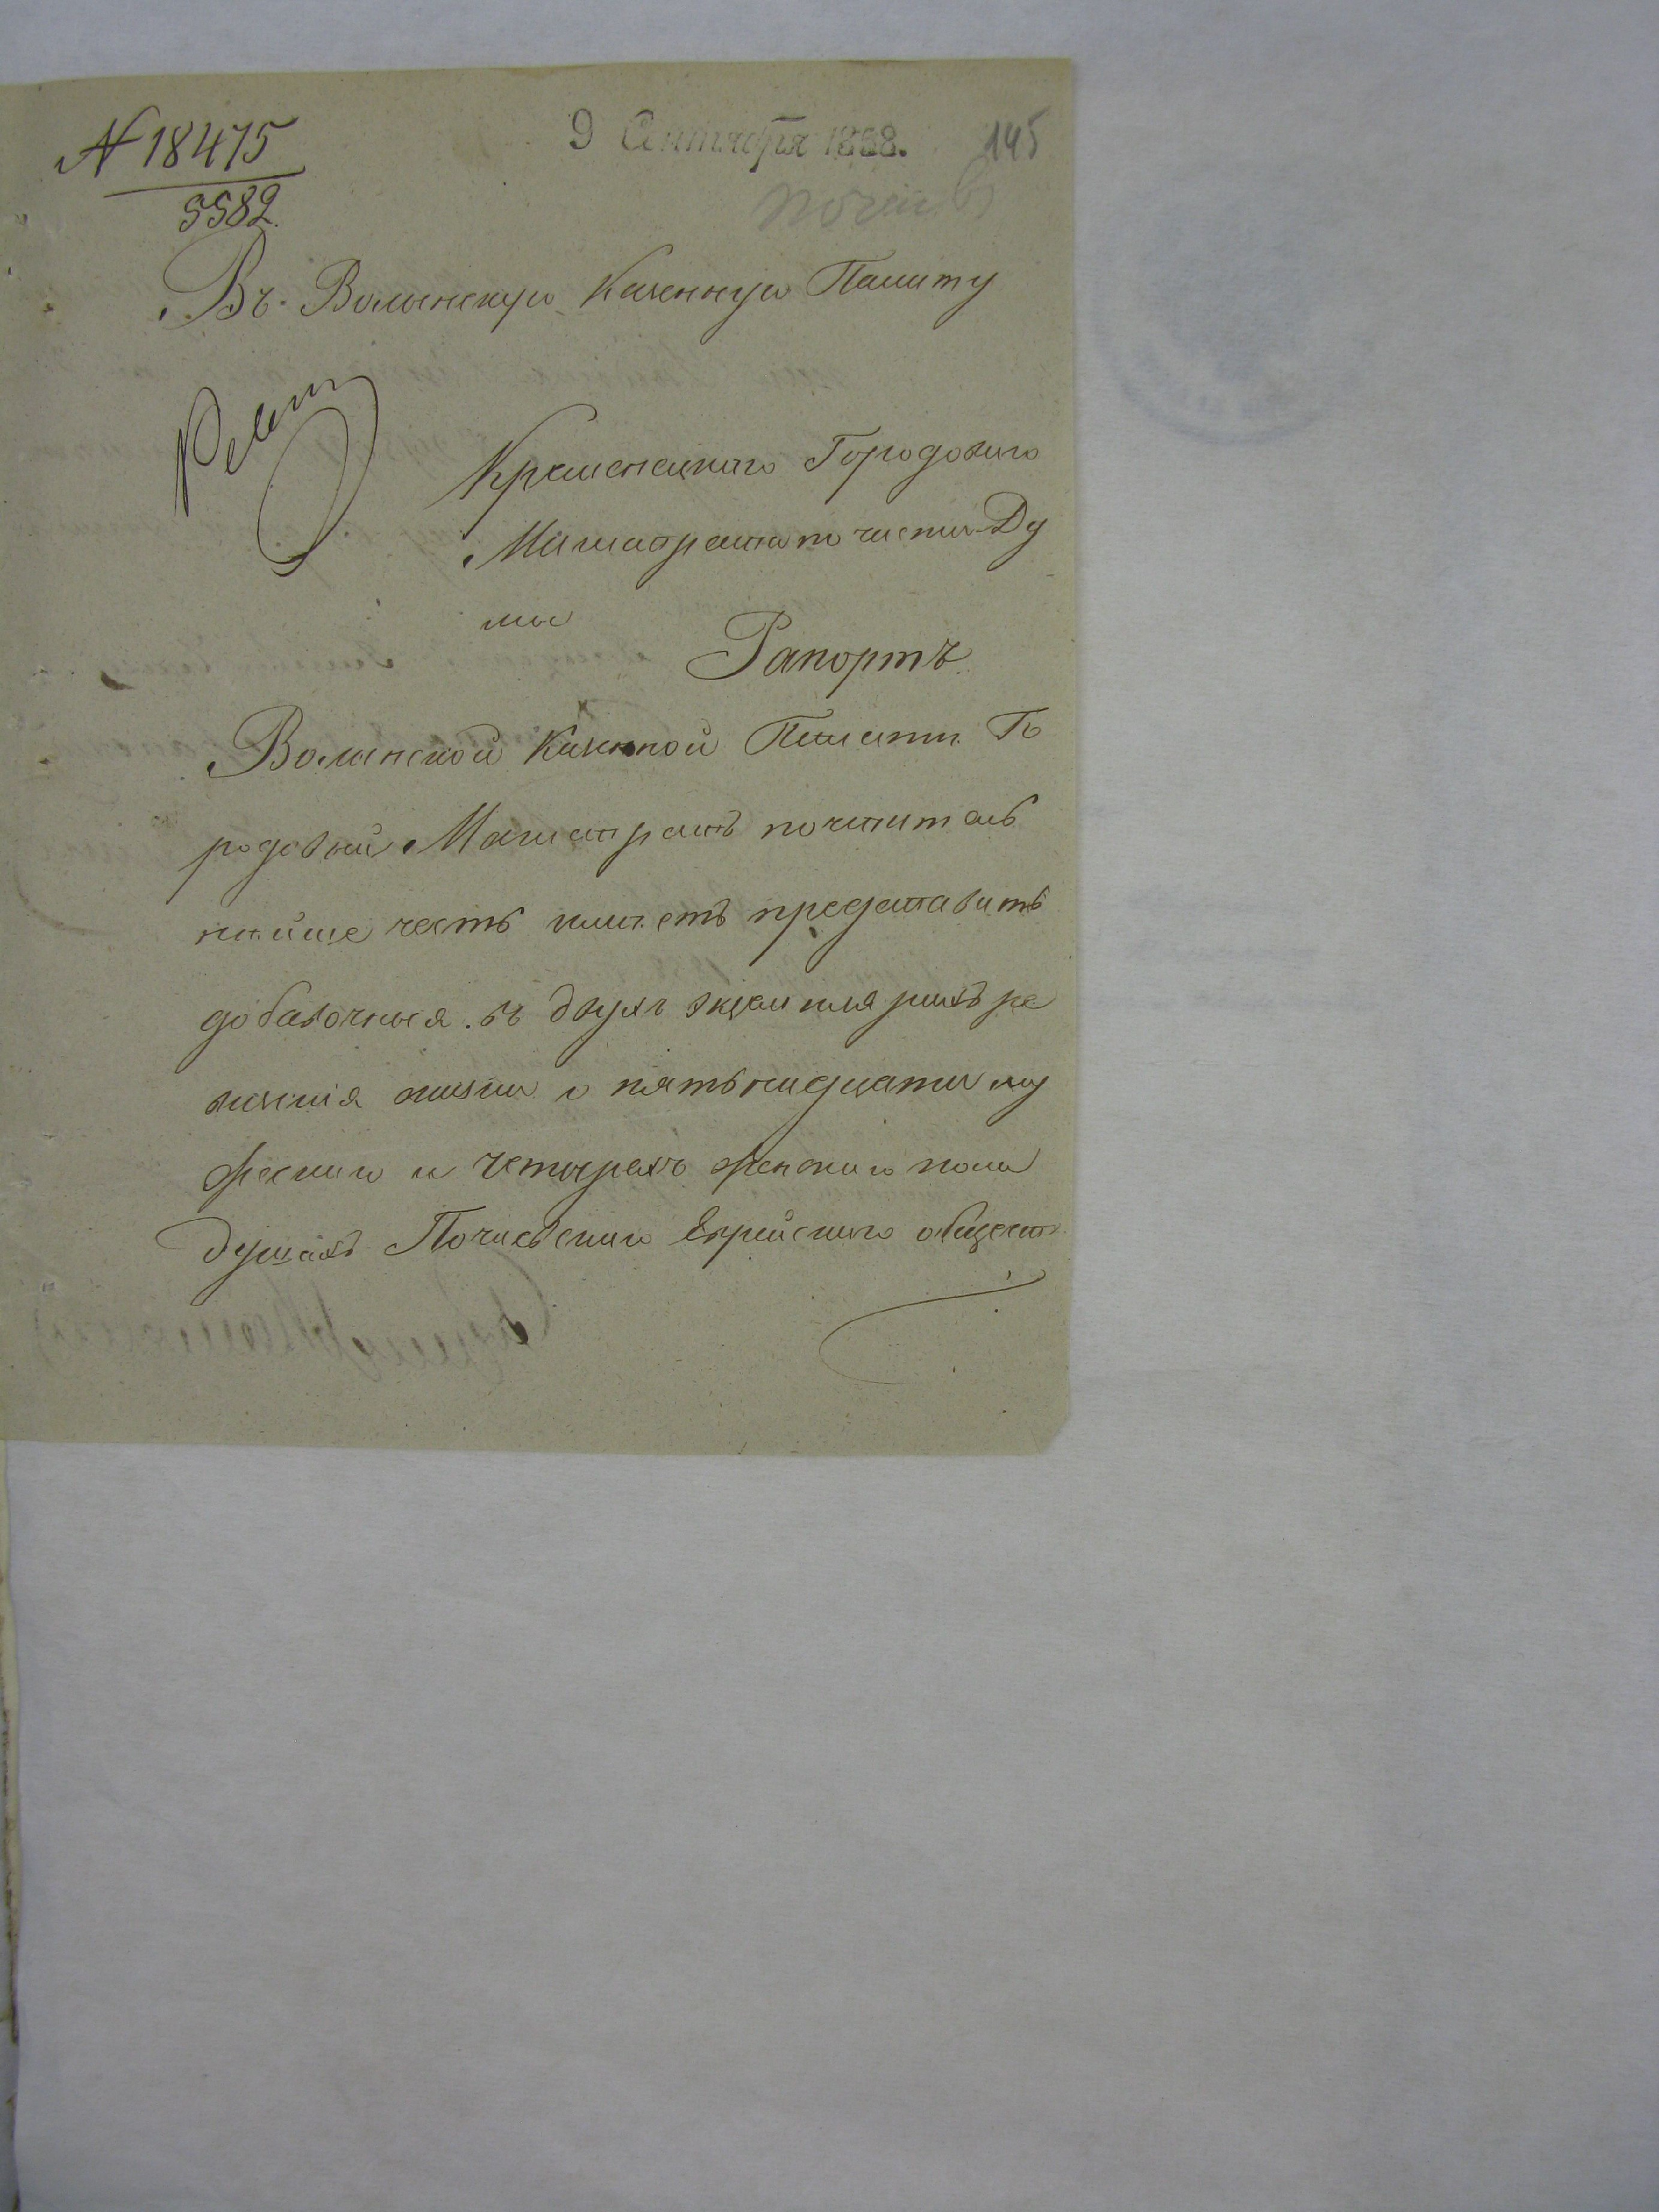 № 18475
5582.
9 Сентября 1858. 145
Почаев
Въ Волынскую Казенную Палату
Кременецкаго Городоваго
Магистрата по части Ду
мы
Рапортъ
Волынской Казенной Палатѣ Го
родовый Магистратъ почтитель
нѣйше честь имѣетъ представить
добавочныя въ двухъ экземплярахъ ре
визскія сказки о пятьнадцати му
жеска и четырехъ женскаго пола
душахъ Почаевскаго Еврейскаго общест